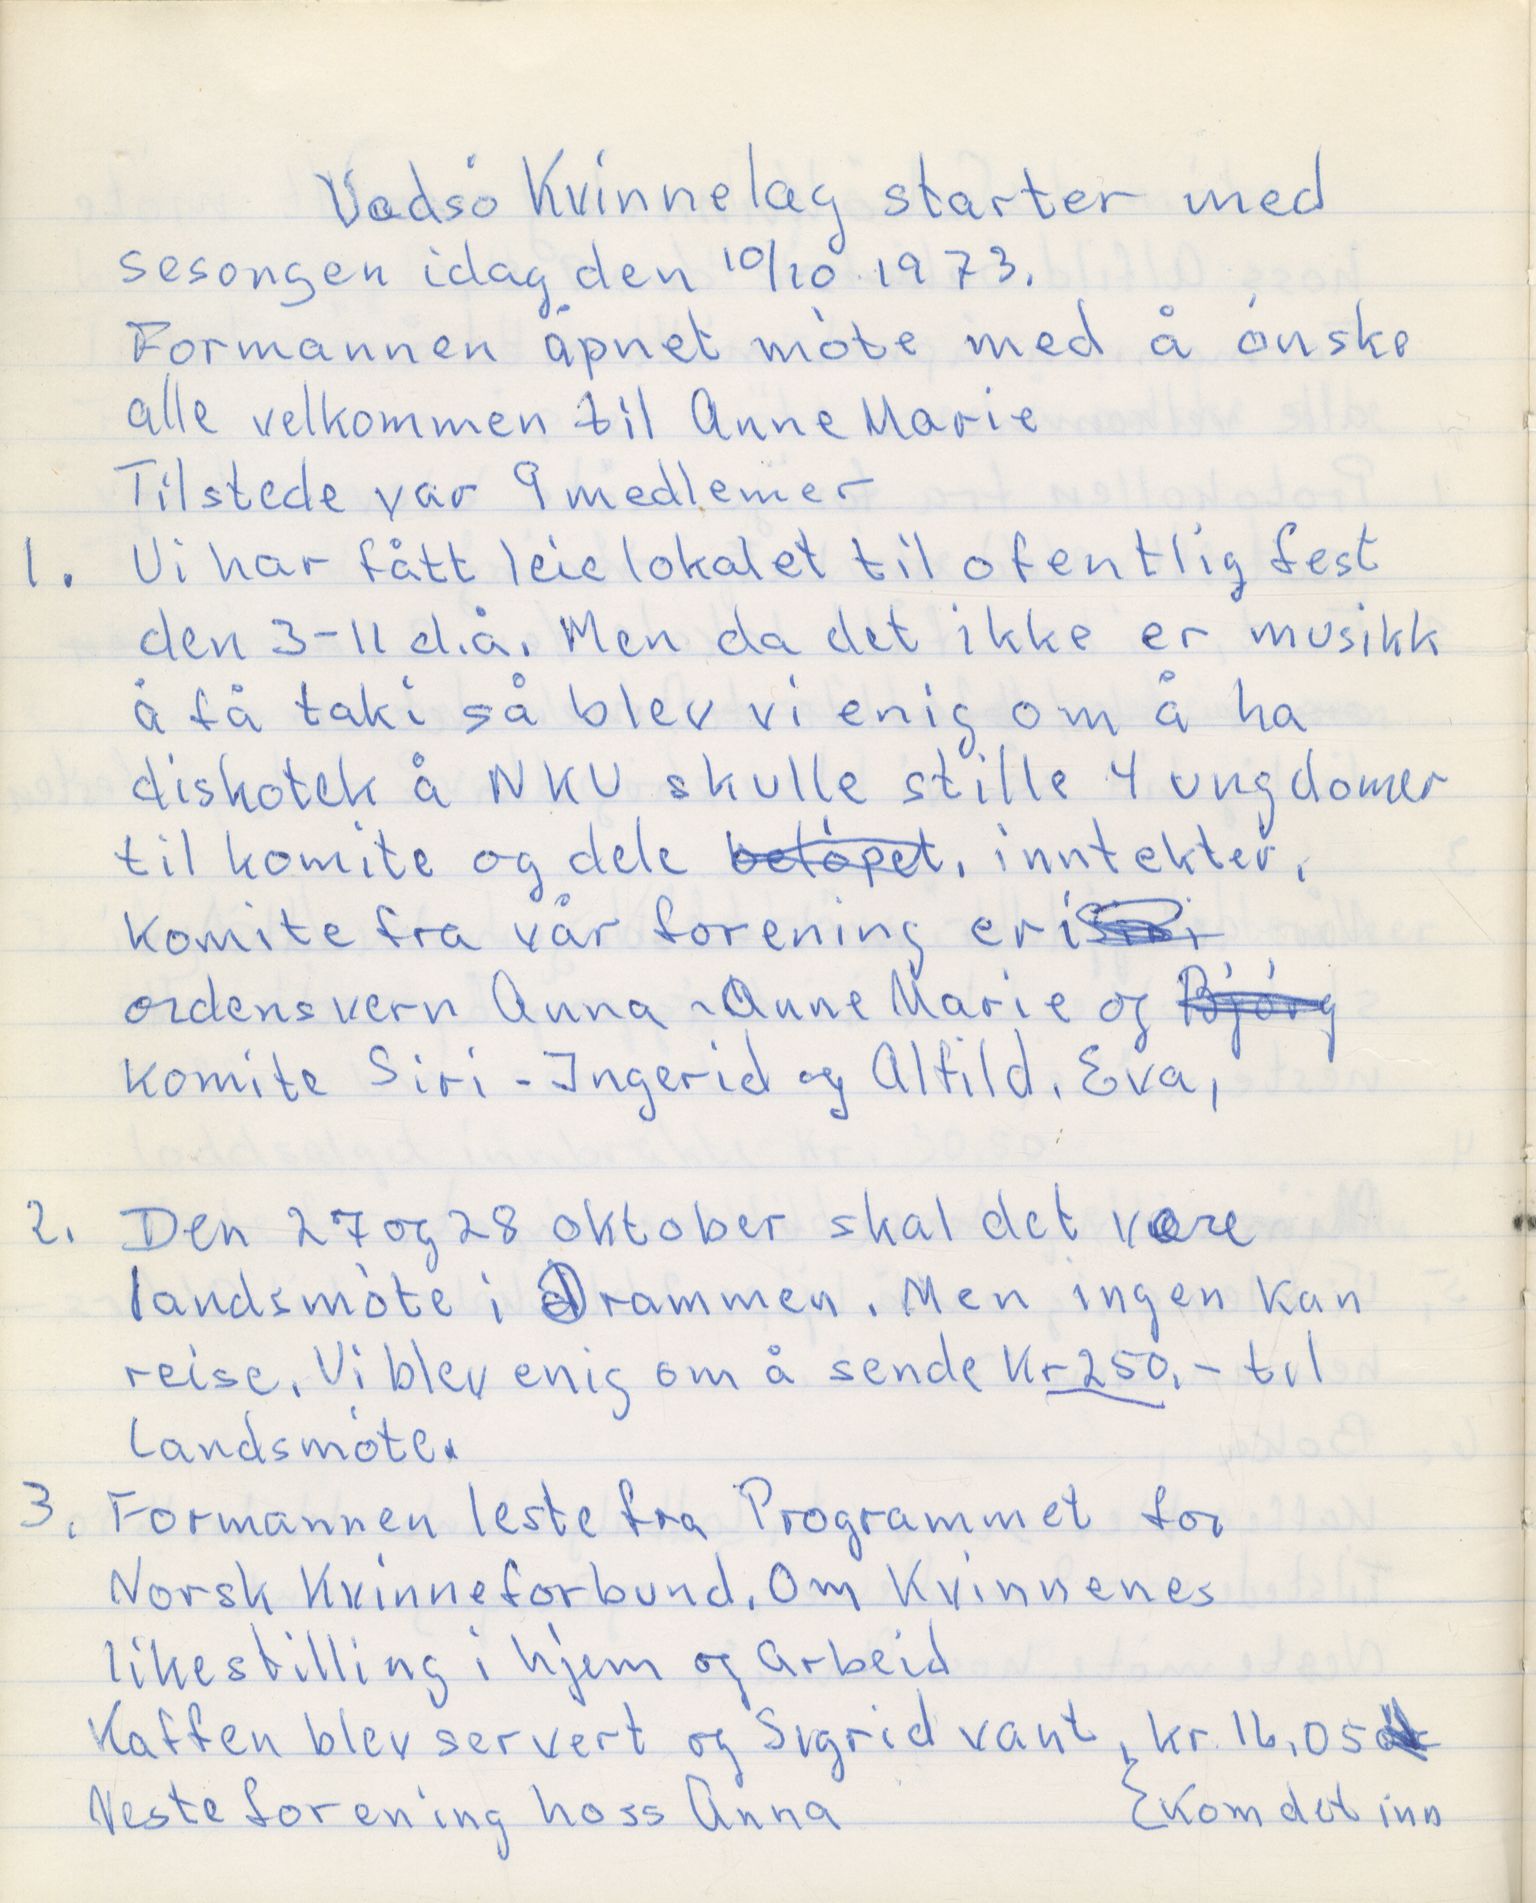 Vadsø Kvinnelag starter med
sesongen idag den 10/10 1973.
Formannen åpnet møte med å ønske
alle velkommen til Anne Marie
Tilstede var 9 medlemer
1. Vi har fått leie lokalet til ofentlig fest
den 3-11 d.å. Men da det ikke er musikk
å få taki så blev vi enig om å ha
diskotek å NKU skulle stille 4 ungdomer
til komite og dele beløpet, inntekter,
Komite fra vår forening er i
ordensvern Anna - Anne Marie og Bjørg
Komite Siri - Ingerid og Alfild. Eva,
2. Den 27 og 28 oktober skal det være
landsmøte i Drammen. Men ingen kan
reise. Vi blev enig om å sende Kr 250.- til
Landsmøte.
3. Formannen leste fra Programmet for
Norsk Kvinneforbund. Om Kvinnenes
likestilling i hjem og arbeid
Kaffen blev servert og Sigrid vant, kr. 16,05
Neste forening hoss Anna { Kom det inn